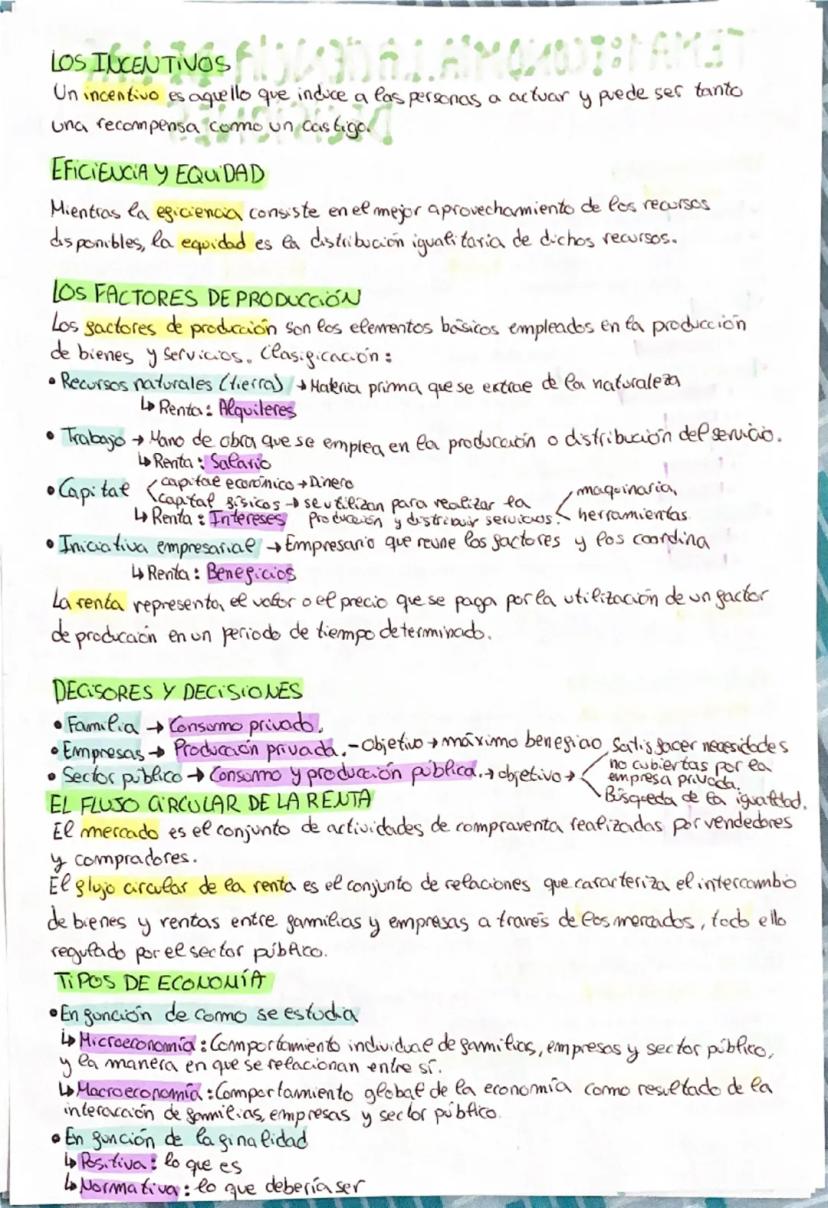 LOS INCENTIVOS
Un incentivo es aquello que induce a las personas a actuar y puede ser tanto
una recompensa como un castigo.
EFICIENCIA Y EQUIDAD
Mientras la eficiencia consiste en el mejor aprovechamiento de los recursos
disponibles, la equidad es la distribución igualitaria de dichos recursos.
LOS FACTORES DE PRODUCCIÓN
Los factores de producción son los elementos básicos empleados en la producción
de bienes y servicios. Clasificación:
• Recursos naturales (tierra) → Materia prima que se extrae de la naturaleza
↳ Renta: Alquileres
• Trabajo → Mano de obra que se emplea en la producción o distribución del servicio.
↳ Renta: Salario
• Capital < capital económico → Dinero
capital físicos → se utilizan para realizar la producción y distribuir servicios. < maquinaria, herramientas
↳ Renta: Intereses
• Iniciativa empresarial → Empresario que reune los factores y los coordina
↳ Renta: Beneficios
La renta representa el valor o el precio que se paga por la utilización de un factor
de producción en un periodo de tiempo determinado.
DECISORES Y DECISIONES
• Familia → Consumo privado.
• Empresas → Producción privada. - Objetivo → máximo beneficio
• Sector público → Consumo y producción pública. → objetivo → < Satisfacer necesidades
no cubiertas por la
empresa privada.
Búsqueda de la igualdad.
EL FLUJO CIRCULAR DE LA RENTA
El mercado es el conjunto de actividades de compraventa realizadas por vendedores
y compradores.
El flujo circular de la renta es el conjunto de relaciones que caracteriza el intercambio
de bienes y rentas entre familias y empresas a través de los mercados, todo ello
regulado por el sector público.
TIPOS DE ECONOMÍA
• En función de como se estudia
↳ Microeconomía: Comportamiento individual de familias, empresas y sector público,
y la manera en que se relacionan entre sí.
↳ Macroeconomía: Comportamiento global de la economía como resultado de la
interacción de familias, empresas y sector público.
• En función de la finalidad
↳ Positiva: lo que es
↳ Normativa: lo que debería ser